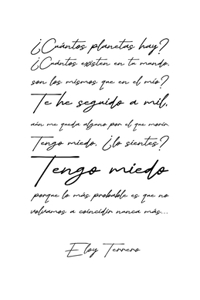 ¿Cuántos planetas hay?
¿Cuántos existen en tu mundo,
son los mismos que en el mío?
Te he seguido a mil,
aún me queda alguno por el que morir.
Tengo miedo, ¿lo sientes?
Tengo miedo
porque lo más probable es que no
volvamos a coincidir nunca más...
Eloy Terrero